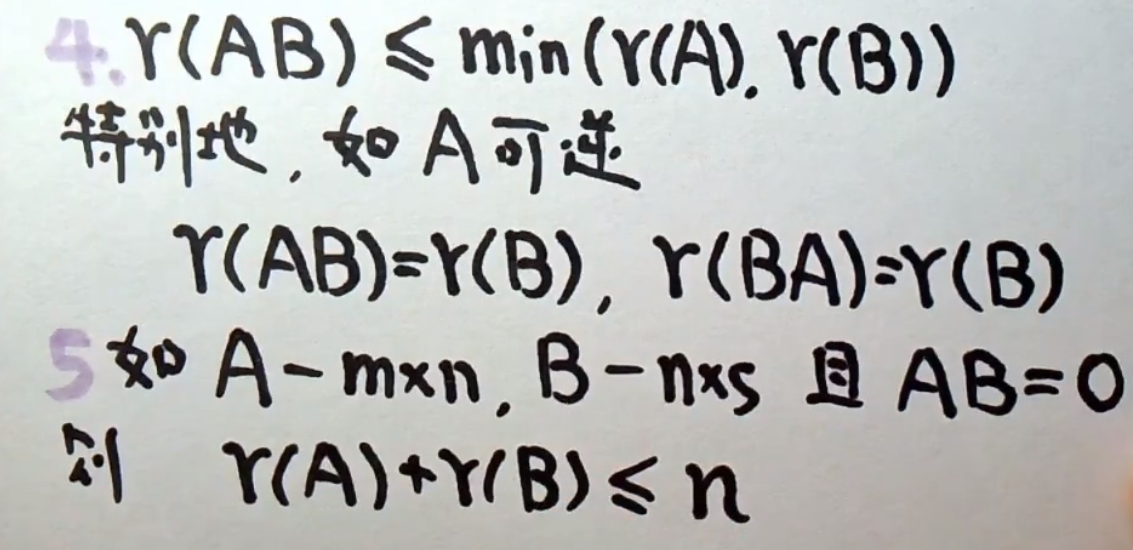 4. r(AB) ≤ min(r(A), r(B))
特别地, 如 A 可逆
r(AB)=r(B), r(BA)=r(B)
5 如 A-m×n, B-n×s 且 AB=0
则 r(A)+r(B)≤n